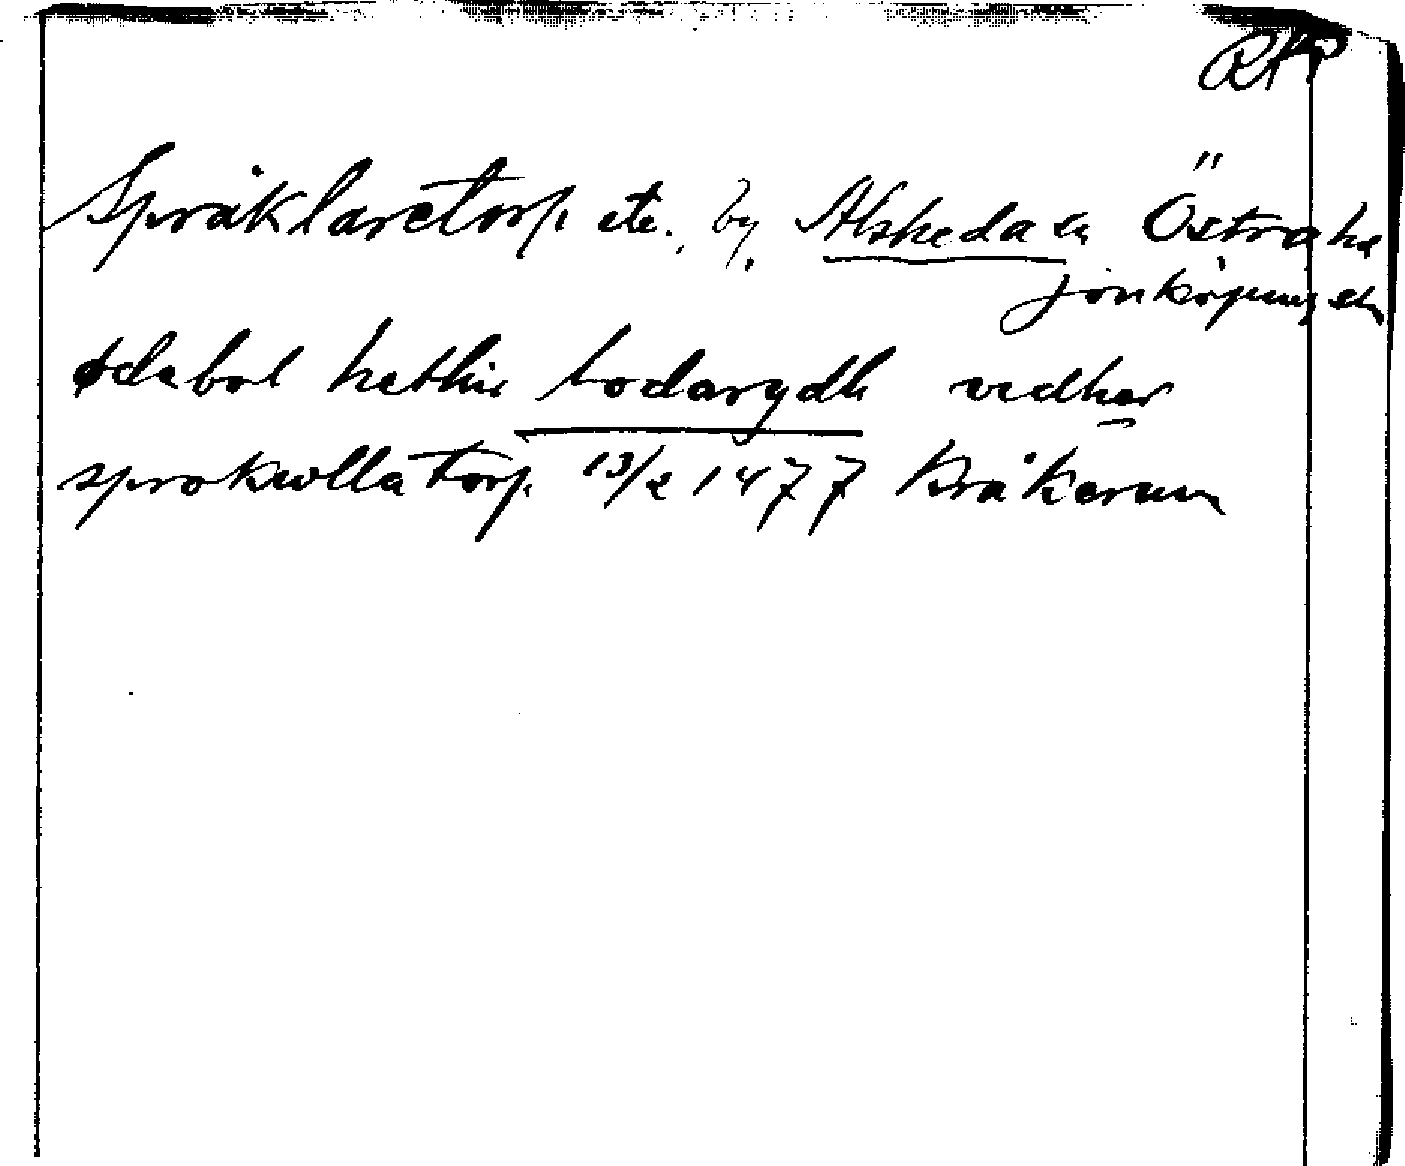 RAP
Språklaretorp etc., by, Alsheda sn Östra hd
Jönköpings län
ødebol hethir bodarydh vedher
sprokwllatorp 13/2 1477 Kråkerum